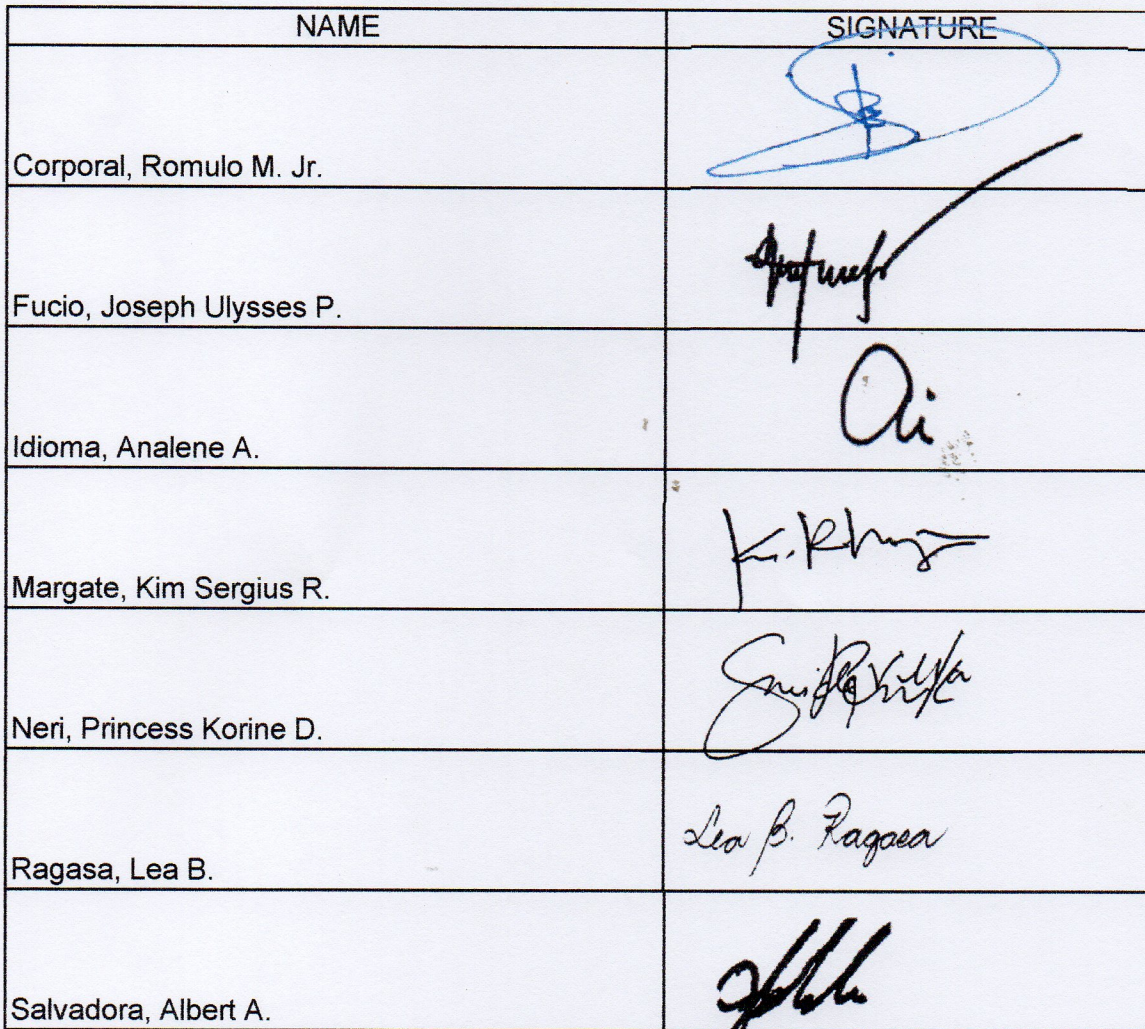 NAME SIGNATURE
Corporal, Romulo M. Jr.
Fucio, Joseph Ulysses P.
Idioma, Analene A.
Margate, Kim Sergius R.
Neri, Princess Korine D.
Ragasa, Lea B. Lea B. Ragasa
Salvadora, Albert A.